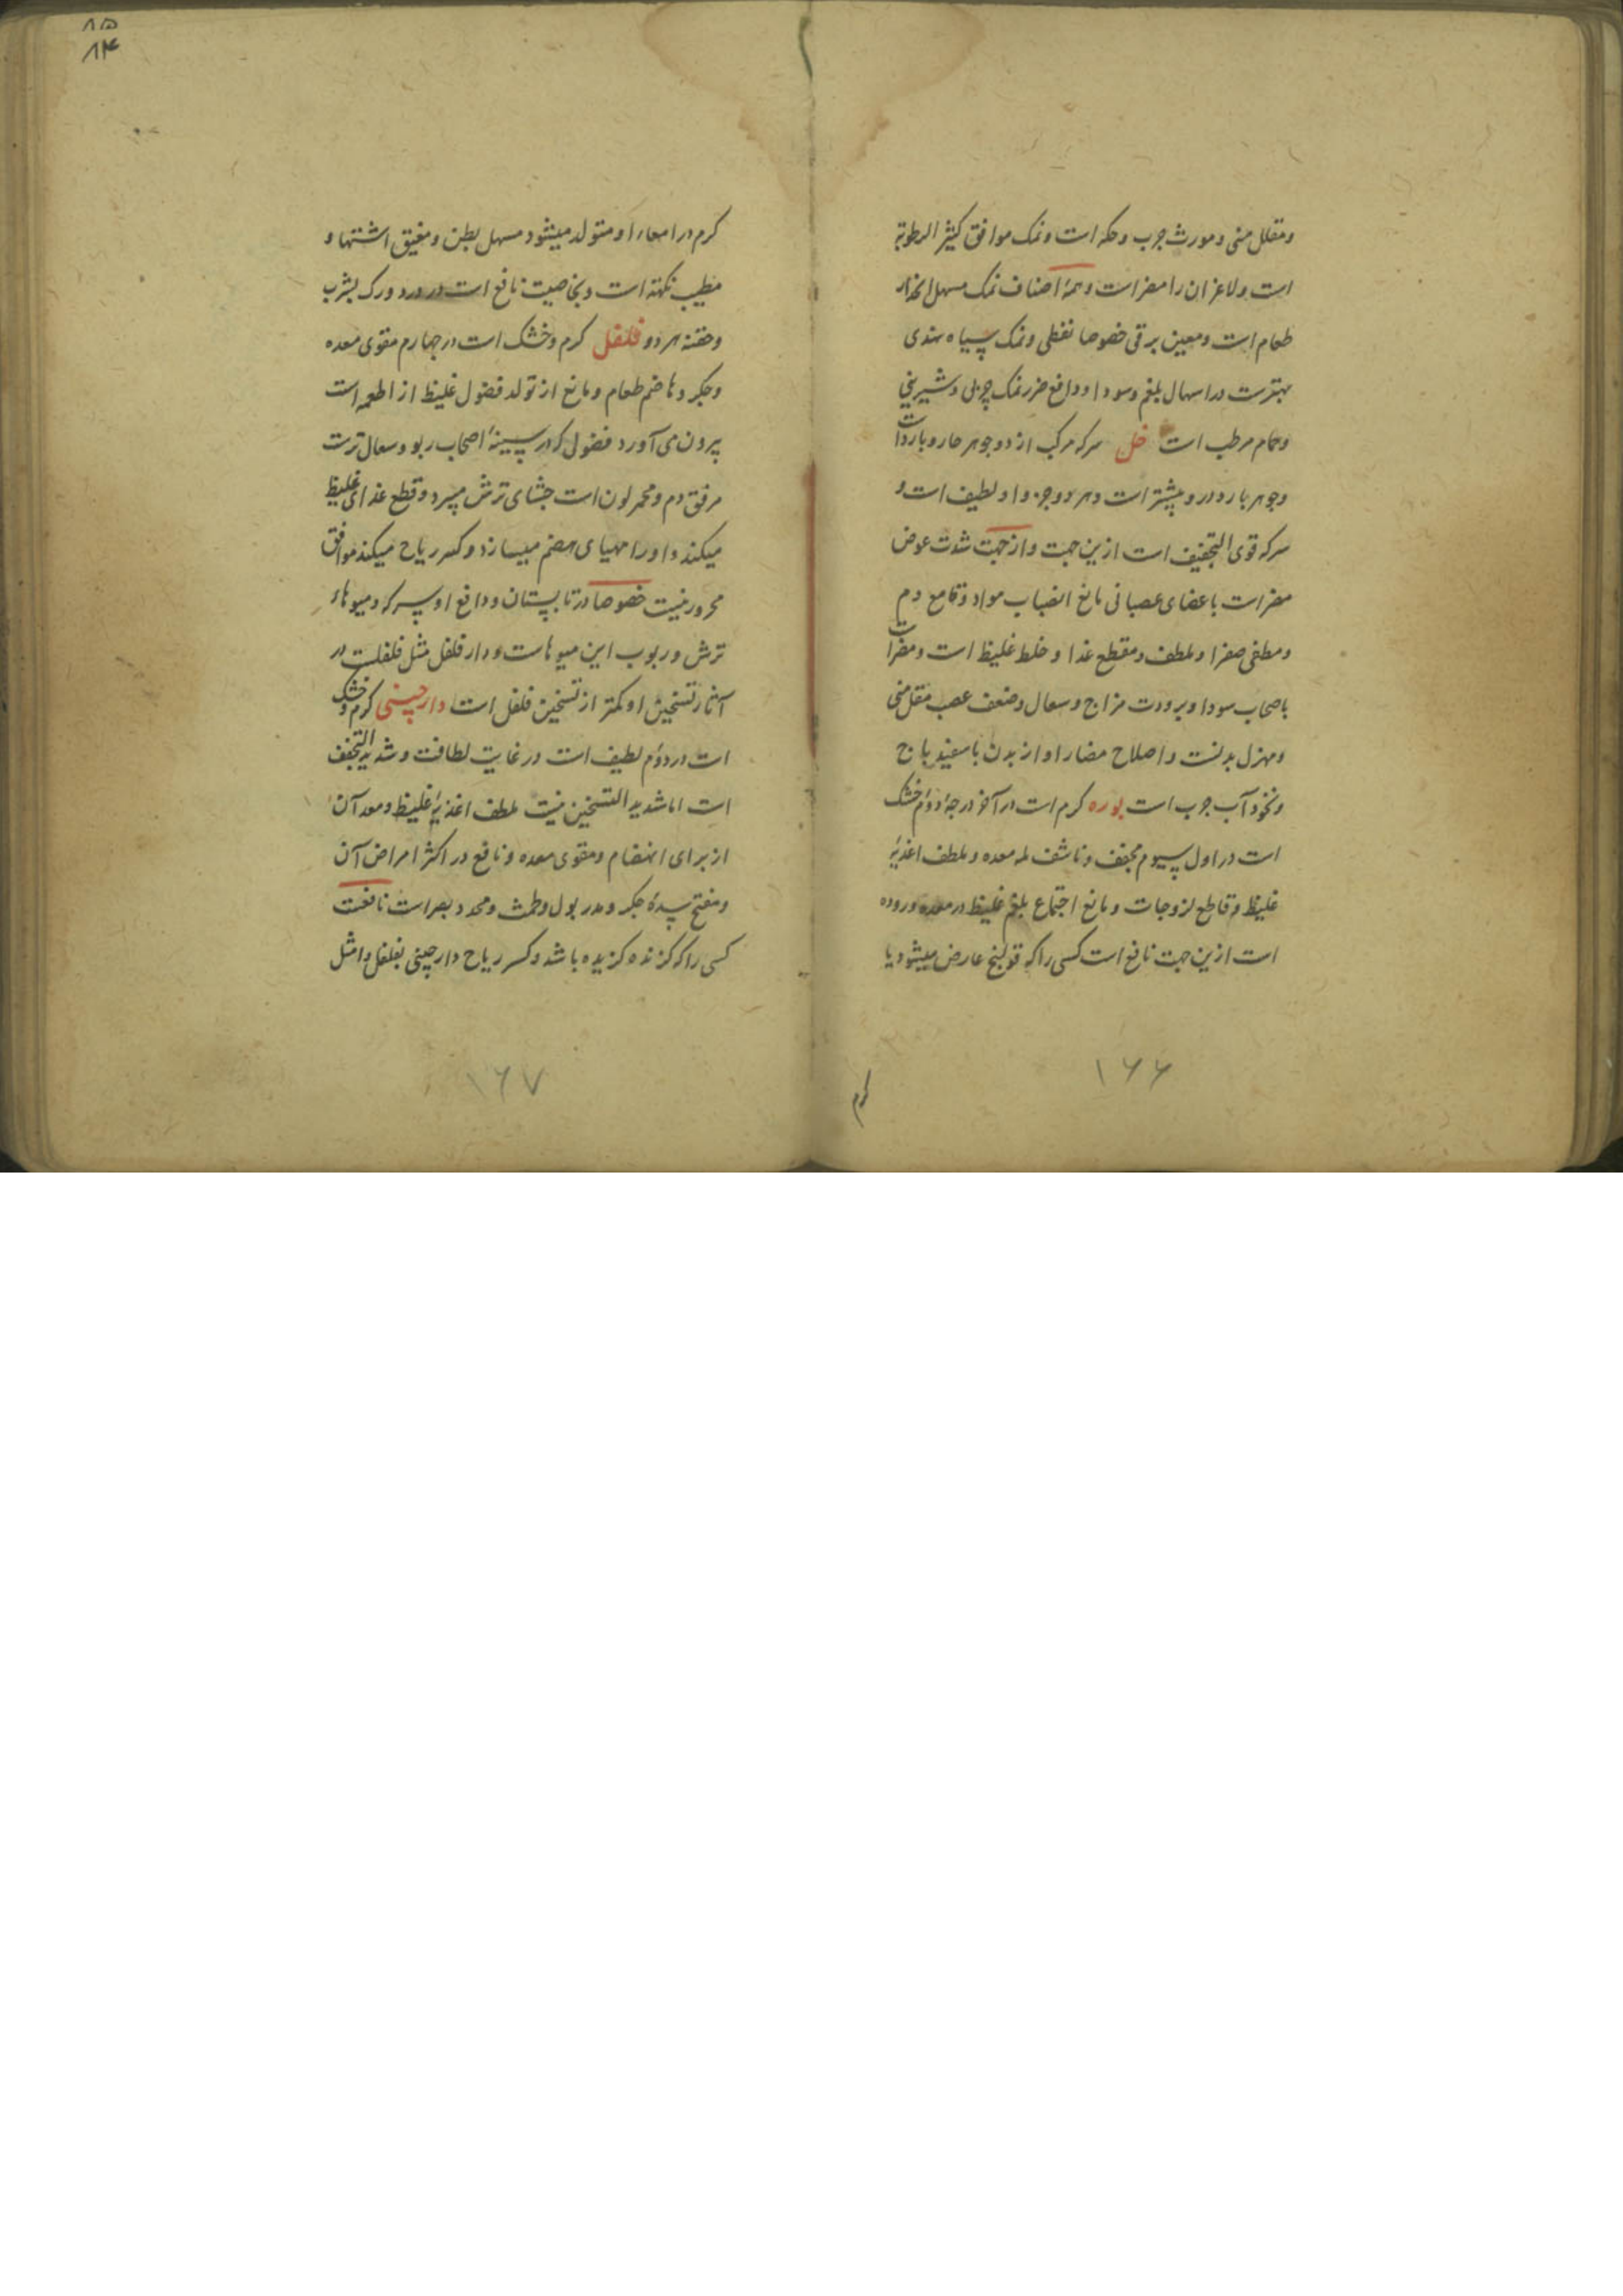 ۸۵
۸۴
و مقلل منی و مورث جرب و حکه است و نمک موافق کثیر الرطوبة
است و لاغران را مضر است و همهٔ اصناف نمک مسهل انحدار
طعام است و معین بر قی خصوصا نفطی و نمک سیاه هندی
بهترست در اسهال بلغم و سودا و دافع ضرر نمک چربی و شیرینی
و حمام مرطب است خل سرکه مرکب از دو جوهر حار و بارد است
و جوهر بارد درو بیشتر است و هر دو جزو او لطیف است و
سرکه قوی التجفیف است ازین جهت و از جهت شدت غوص
مضر است باعضای عصبانی مانع انصباب مواد و قامع دم
و مطفی صفرا و ملطف و مقطع غذا و خلط غلیظ است و مضر است
باصحاب سودا و برودت مزاج و سعال و ضعف عصب مقلل منی
و مهزل بدنست و اصلاح مضار او از بدن باسفیدباج
و نخود آب چرب است بوره کرم است در آخر درجهٔ دوم خشک
است در اول سیوم مجفف و ناشف له معده و ملطف اغذیهٔ
غلیظ و قاطع لزوجات و مانع اجتماع بلغم غلیظ در معده و روده
است ازین جهت نافع است کسی را که قولنج عارض میشود یا
۱۶۶
کرم
کرم در امعاء او متولد میشود مسهل بطن و مفیق اشتها و
مطیب نکهته است و بخاصیت نافع است در درد ورک بشرب
و حقنه هر دو فلفل کرم و خشک است در چهارم مقوی معده
و جکر و هاضم طعام و مانع از تولد فضول غلیظ از اطعمه است
بیرون می آورد فضول که در سینهٔ اصحاب ربو و سعال ترست
مرقق دم و محمر لون است جشای ترش میبرد و قطع غذای غلیظ
میکند و او را مهیای هضم میسازد و کسر ریاح میکند موافق
محرور نیست خصوصا در تابستان و دافع او سرکه و میوهاء
ترش و ربوب این میوهاست و دار فلفل مثل فلفلست در
آثار تسخین او کمتر از تسخین فلفل است دارچینی کرم و خشک
است در دوم لطیف است در غایت لطافت و شدید التجفف
است اما شدید التسخین نیست ملطف اغذیهٔ غلیظ و معد آن
از برای انهضام و مقوی معده و نافع در اکثر امراض آن
و مفتح سدهٔ جکر و مدر بول و طمث و محدد بصر است نافعست
کسی را که کزنده کزیده باشد و کسر ریاح دارچینی بفلفل و امثل
۱۶۷